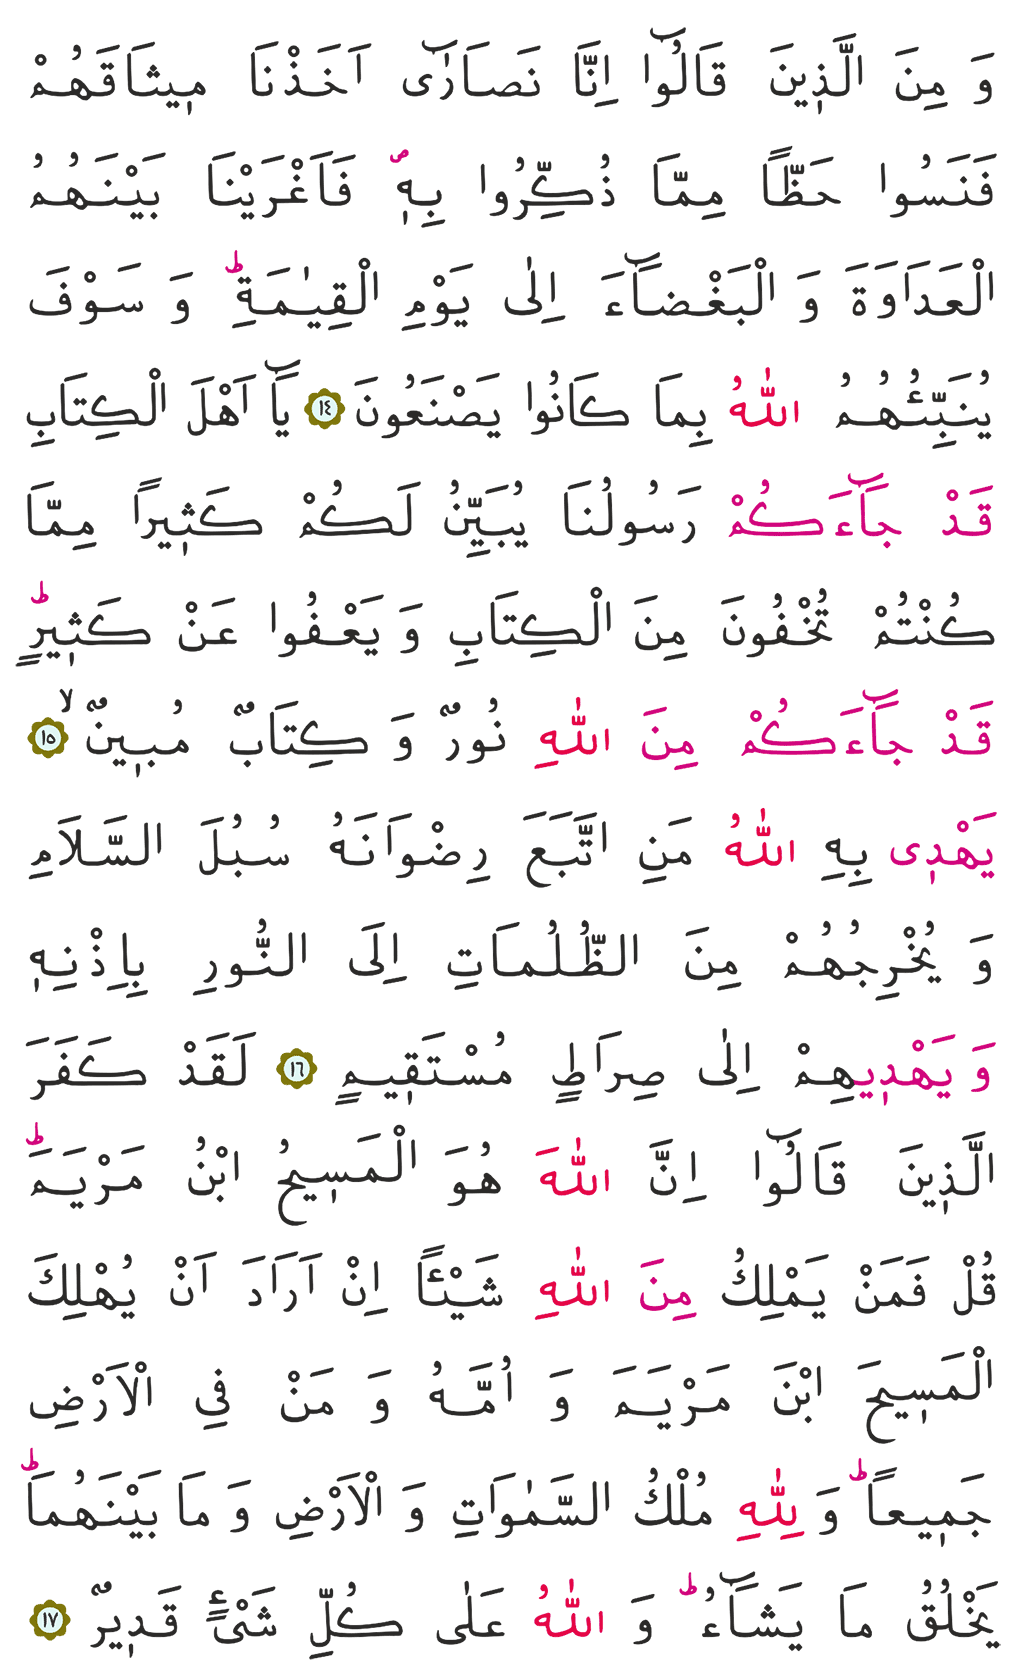 وَ مِنَ الَّذٖينَ قَالُٓوا اِنَّا نَصَارٰٓى اَخَذْنَا مٖيثَاقَهُمْ
فَنَسُوا حَظًّا مِمَّا ذُكِّرُوا بِهٖۖ فَاَغْرَيْنَا بَيْنَهُمُ
الْعَدَاوَةَ وَ الْبَغْضَٓاءَ اِلٰى يَوْمِ الْقِيٰمَةِؕ وَ سَوْفَ
يُنَبِّئُهُمُ اللّٰهُ بِمَا كَانُوا يَصْنَعُونَ ﴿١٤﴾ يَٓا اَهْلَ الْكِتَابِ
قَدْ جَٓاءَكُمْ رَسُولُنَا يُبَيِّنُ لَكُمْ كَثٖيرًا مِمَّا
كُنْتُمْ تُخْفُونَ مِنَ الْكِتَابِ وَ يَعْفُوا عَنْ كَثٖيرٍؕ
قَدْ جَٓاءَكُمْ مِنَ اللّٰهِ نُورٌ وَ كِتَابٌ مُبٖينٌۙ ﴿١٥﴾
يَهْدٖى بِهِ اللّٰهُ مَنِ اتَّبَعَ رِضْوَانَهُ سُبُلَ السَّلَامِ
وَ يُخْرِجُهُمْ مِنَ الظُّلُمَاتِ اِلَى النُّورِ بِاِذْنِهٖ
وَ يَهْدٖيهِمْ اِلٰى صِرَاطٍ مُسْتَقٖيمٍ ﴿١٦﴾ لَقَدْ كَفَرَ
الَّذٖينَ قَالُٓوا اِنَّ اللّٰهَ هُوَ الْمَسٖيحُ ابْنُ مَرْيَمَؕ
قُلْ فَمَنْ يَمْلِكُ مِنَ اللّٰهِ شَيْـًٔا اِنْ اَرَادَ اَنْ يُهْلِكَ
الْمَسٖيحَ ابْنَ مَرْيَمَ وَ اُمَّهُ وَ مَنْ فِى الْاَرْضِ
جَمٖيعًاؕ وَ لِلّٰهِ مُلْكُ السَّمٰوَاتِ وَ الْاَرْضِ وَ مَا بَيْنَهُمَاؕ
يَخْلُقُ مَا يَشَٓاءُؕ وَ اللّٰهُ عَلٰى كُلِّ شَىْءٍ قَدٖيرٌ ﴿١٧﴾